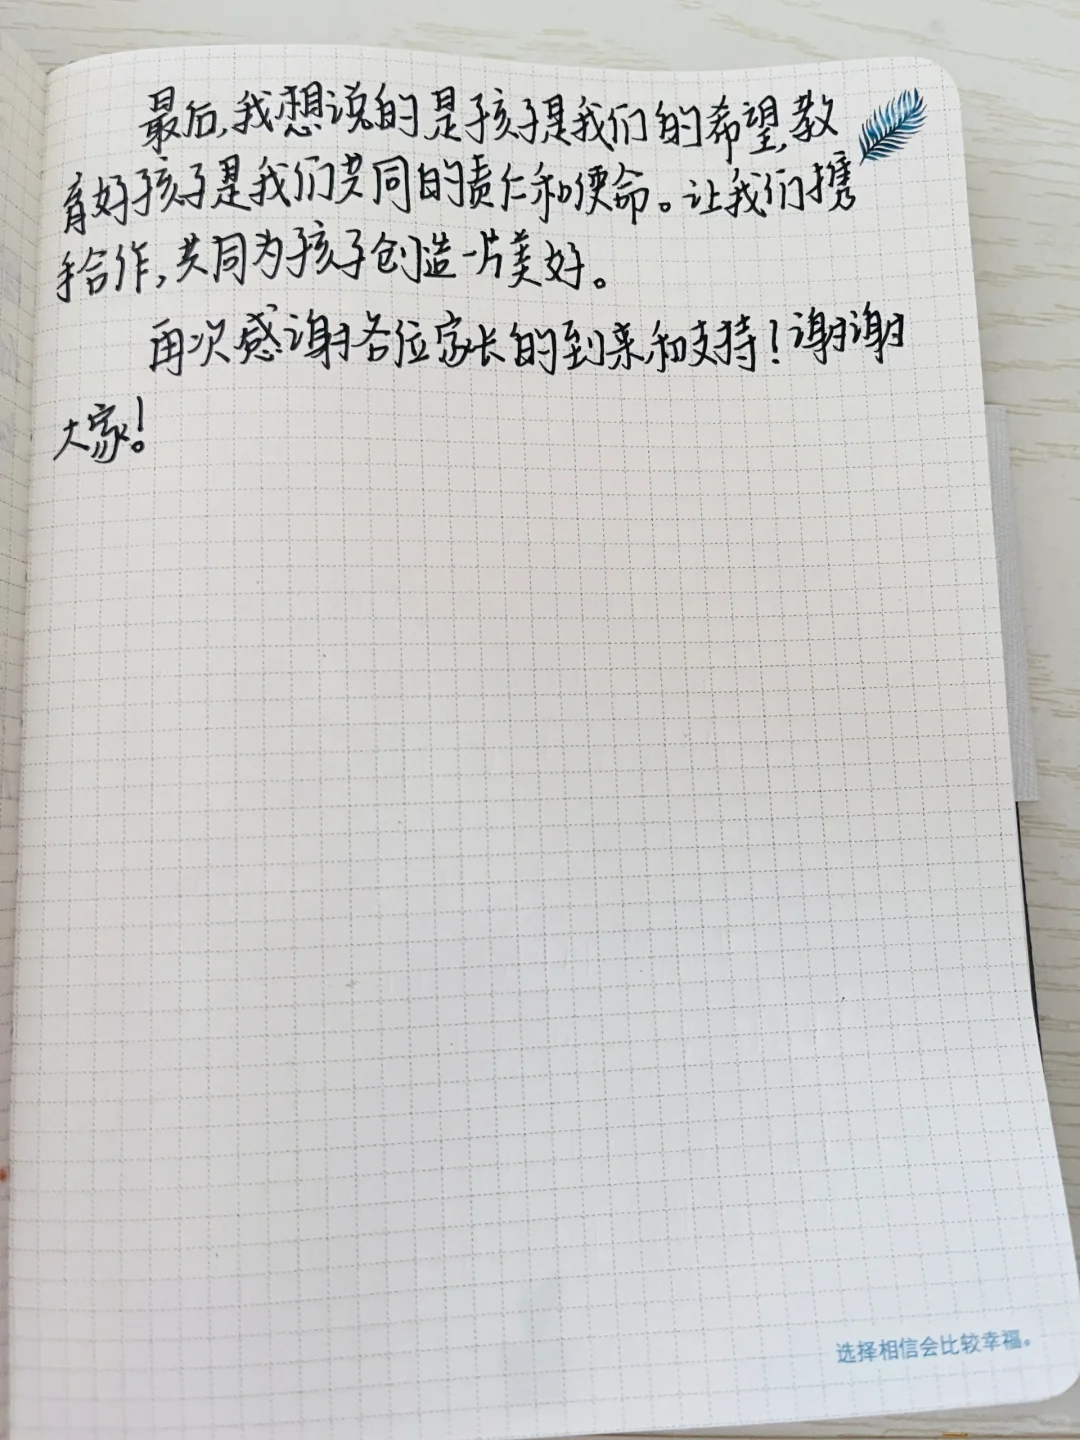 最后,我想说的是孩子是我们的希望,教
育好孩子是我们共同的责任和使命。让我们携
手合作,共同为孩子创造一片美好。
再次感谢各位家长的到来和支持!谢谢
大家!
选择相信会比较幸福。